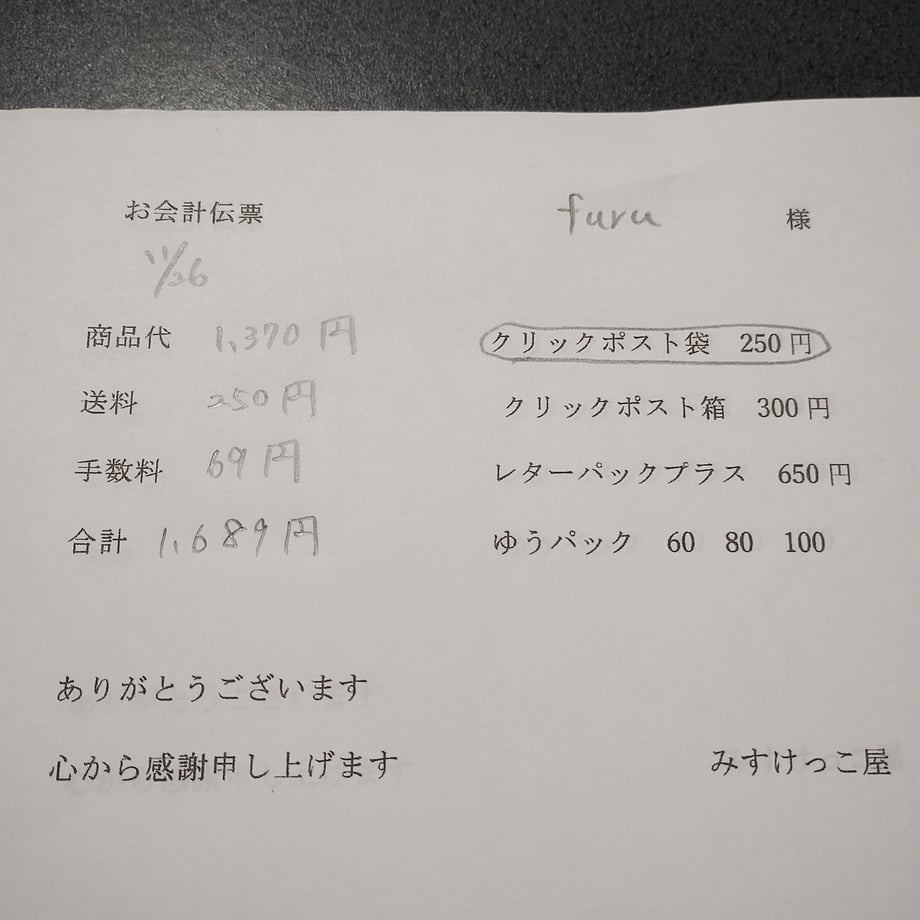 お会計伝票 furu 様
11/26
商品代 1,370円 クリックポスト袋 250円
送料 250円 クリックポスト箱 300円
手数料 69円 レターパックプラス 650円
合計 1,689円 ゆうパック 60 80 100
ありがとうございます
心から感謝申し上げます みすけっこ屋